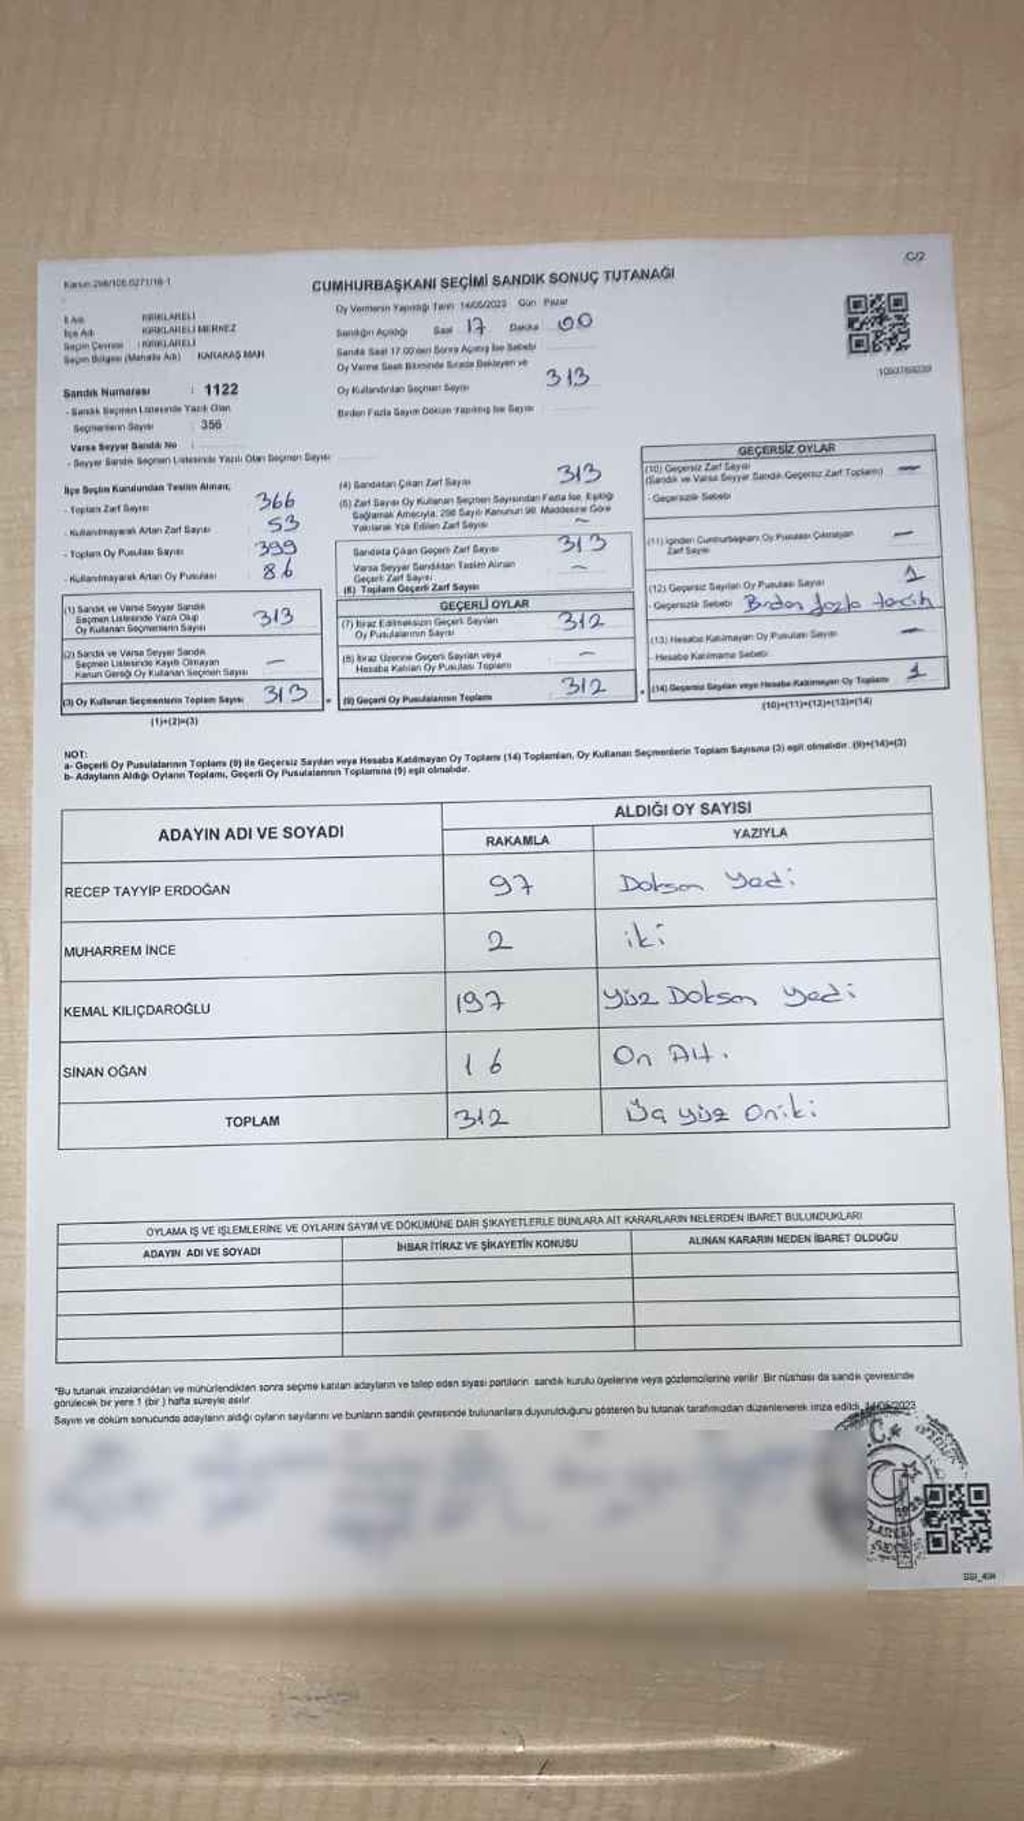 Kanun:298/105,6271/18-1
C/2
CUMHURBAŞKANI SEÇİMİ SANDIK SONUÇ TUTANAĞI
İl Adı : KIRKLARELİ
İlçe Adı : KIRKLARELİ MERKEZ
Seçim Çevresi : KIRKLARELİ
Seçim Bölgesi (Mahalle Adı) : KARAKAŞ MAH
Sandık Numarası : 1122
- Sandık Seçmen Listesinde Yazılı Olan
Seçmenlerin Sayısı : 356
Varsa Seyyar Sandık No :
- Seyyar Sandık Seçmen Listesinde Yazılı Olan Seçmen Sayısı
Oy Vermenin Yapıldığı Tarih 14/05/2023 Gün Pazar
Sandığın Açıldığı Saat 17 Dakika 00
Sandık Saat 17.00'den Sonra Açılmış İse Sebebi
Oy Verme Saati Bitiminde Sırada Bekleyen ve
Oy Kullandırılan Seçmen Sayısı 313
Birden Fazla Sayım Döküm Yapılmış İse Sayısı
İlçe Seçim Kurulundan Teslim Alınan;
- Toplam Zarf Sayısı 366
- Kullanılmayarak Artan Zarf Sayısı 53
- Toplam Oy Pusulası Sayısı 399
- Kullanılmayarak Artan Oy Pusulası 86
(1) Sandık ve Varsa Seyyar Sandık
Seçmen Listesinde Yazılı Olup
Oy Kullanan Seçmenlerin Sayısı 313
(2) Sandık ve Varsa Seyyar Sandık
Seçmen Listesinde Kayıtlı Olmayan
Kanun Gereği Oy Kullanan Seçmen Sayısı —
(3) Oy Kullanan Seçmenlerin Toplam Sayısı 313
(1)+(2)=(3)
(4) Sandıktan Çıkan Zarf Sayısı 313
(5) Zarf Sayısı Oy Kullanan Seçmen Sayısından Fazla İse, Eşitliği
Sağlamak Amacıyla, 298 Sayılı Kanunun 98. Maddesine Göre
Yakılarak Yok Edilen Zarf Sayısı —
Sandıkta Çıkan Geçerli Zarf Sayısı 313
Varsa Seyyar Sandıktan Teslim Alınan
Geçerli Zarf Sayısı —
(6) Toplam Geçerli Zarf Sayısı
GEÇERLİ OYLAR
(7) İtiraz Edilmeksizin Geçerli Sayılan
Oy Pusulalarının Sayısı 312
(8) İtiraz Üzerine Geçerli Sayılan veya
Hesaba Katılan Oy Pusulası Toplamı —
(9) Geçerli Oy Pusulalarının Toplamı 312
GEÇERSİZ OYLAR
(10) Geçersiz Zarf Sayısı —
(Sandık ve Varsa Seyyar Sandık Geçersiz Zarf Toplamı)
- Geçersizlik Sebebi
(11) İçinden Cumhurbaşkanı Oy Pusulası Çıkmayan
Zarf Sayısı —
(12) Geçersiz Sayılan Oy Pusulası Sayısı 1
- Geçersizlik Sebebi Birden fazla tercih
(13) Hesaba Katılmayan Oy Pusulası Sayısı —
- Hesaba Katılmama Sebebi
(14) Geçersiz Sayılan veya Hesaba Katılmayan Oy Toplamı 1
(10)+(11)+(12)+(13)=(14)
NOT:
a- Geçerli Oy Pusulalarının Toplamı (9) ile Geçersiz Sayılan veya Hesaba Katılmayan Oy Toplamı (14) Toplamları, Oy Kullanan Seçmenlerin Toplam Sayısına (3) eşit olmalıdır. (9)+(14)=(3)
b- Adayların Aldığı Oyların Toplamı, Geçerli Oy Pusulalarının Toplamına (9) eşit olmalıdır.
ADAYIN ADI VE SOYADI
ALDIĞI OY SAYISI
RAKAMLA YAZIYLA
RECEP TAYYİP ERDOĞAN 97 Doksan Yedi
MUHARREM İNCE 2 iki
KEMAL KILIÇDAROĞLU 197 Yüz Doksan yedi
SİNAN OĞAN 16 On Altı
TOPLAM 312 Üç yüz Oniki
OYLAMA İŞ VE İŞLEMLERİNE VE OYLARIN SAYIM VE DÖKÜMÜNE DAİR ŞİKAYETLERLE BUNLARA AİT KARARLARIN NELERDEN İBARET BULUNDUKLARI
ADAYIN ADI VE SOYADI İHBAR İTİRAZ VE ŞİKAYETİN KONUSU ALINAN KARARIN NEDEN İBARET OLDUĞU
*Bu tutanak imzalandıktan ve mühürlendikten sonra seçime katılan adayların ve talep eden siyasi partilerin sandık kurulu üyelerine veya gözlemcilerine verilir. Bir nüshası da sandık çevresinde
görülecek bir yere 1 (bir) hafta süreyle asılır.
Sayım ve döküm sonucunda adayların aldığı oyların sayılarını ve bunların sandık çevresinde bulunanlara duyurulduğunu gösteren bu tutanak tarafımızdan düzenlenerek imza edildi. 14/05/2023
T.C.